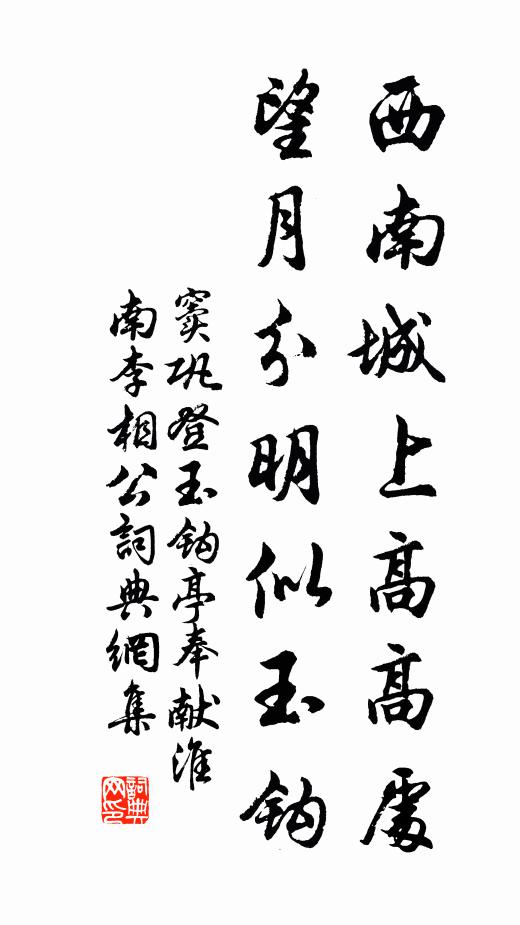 西南城上高高處
望月分明似玉鈎
竇巩登玉鈎亭奉献淮
南李相公詞典網集
詞典
网印